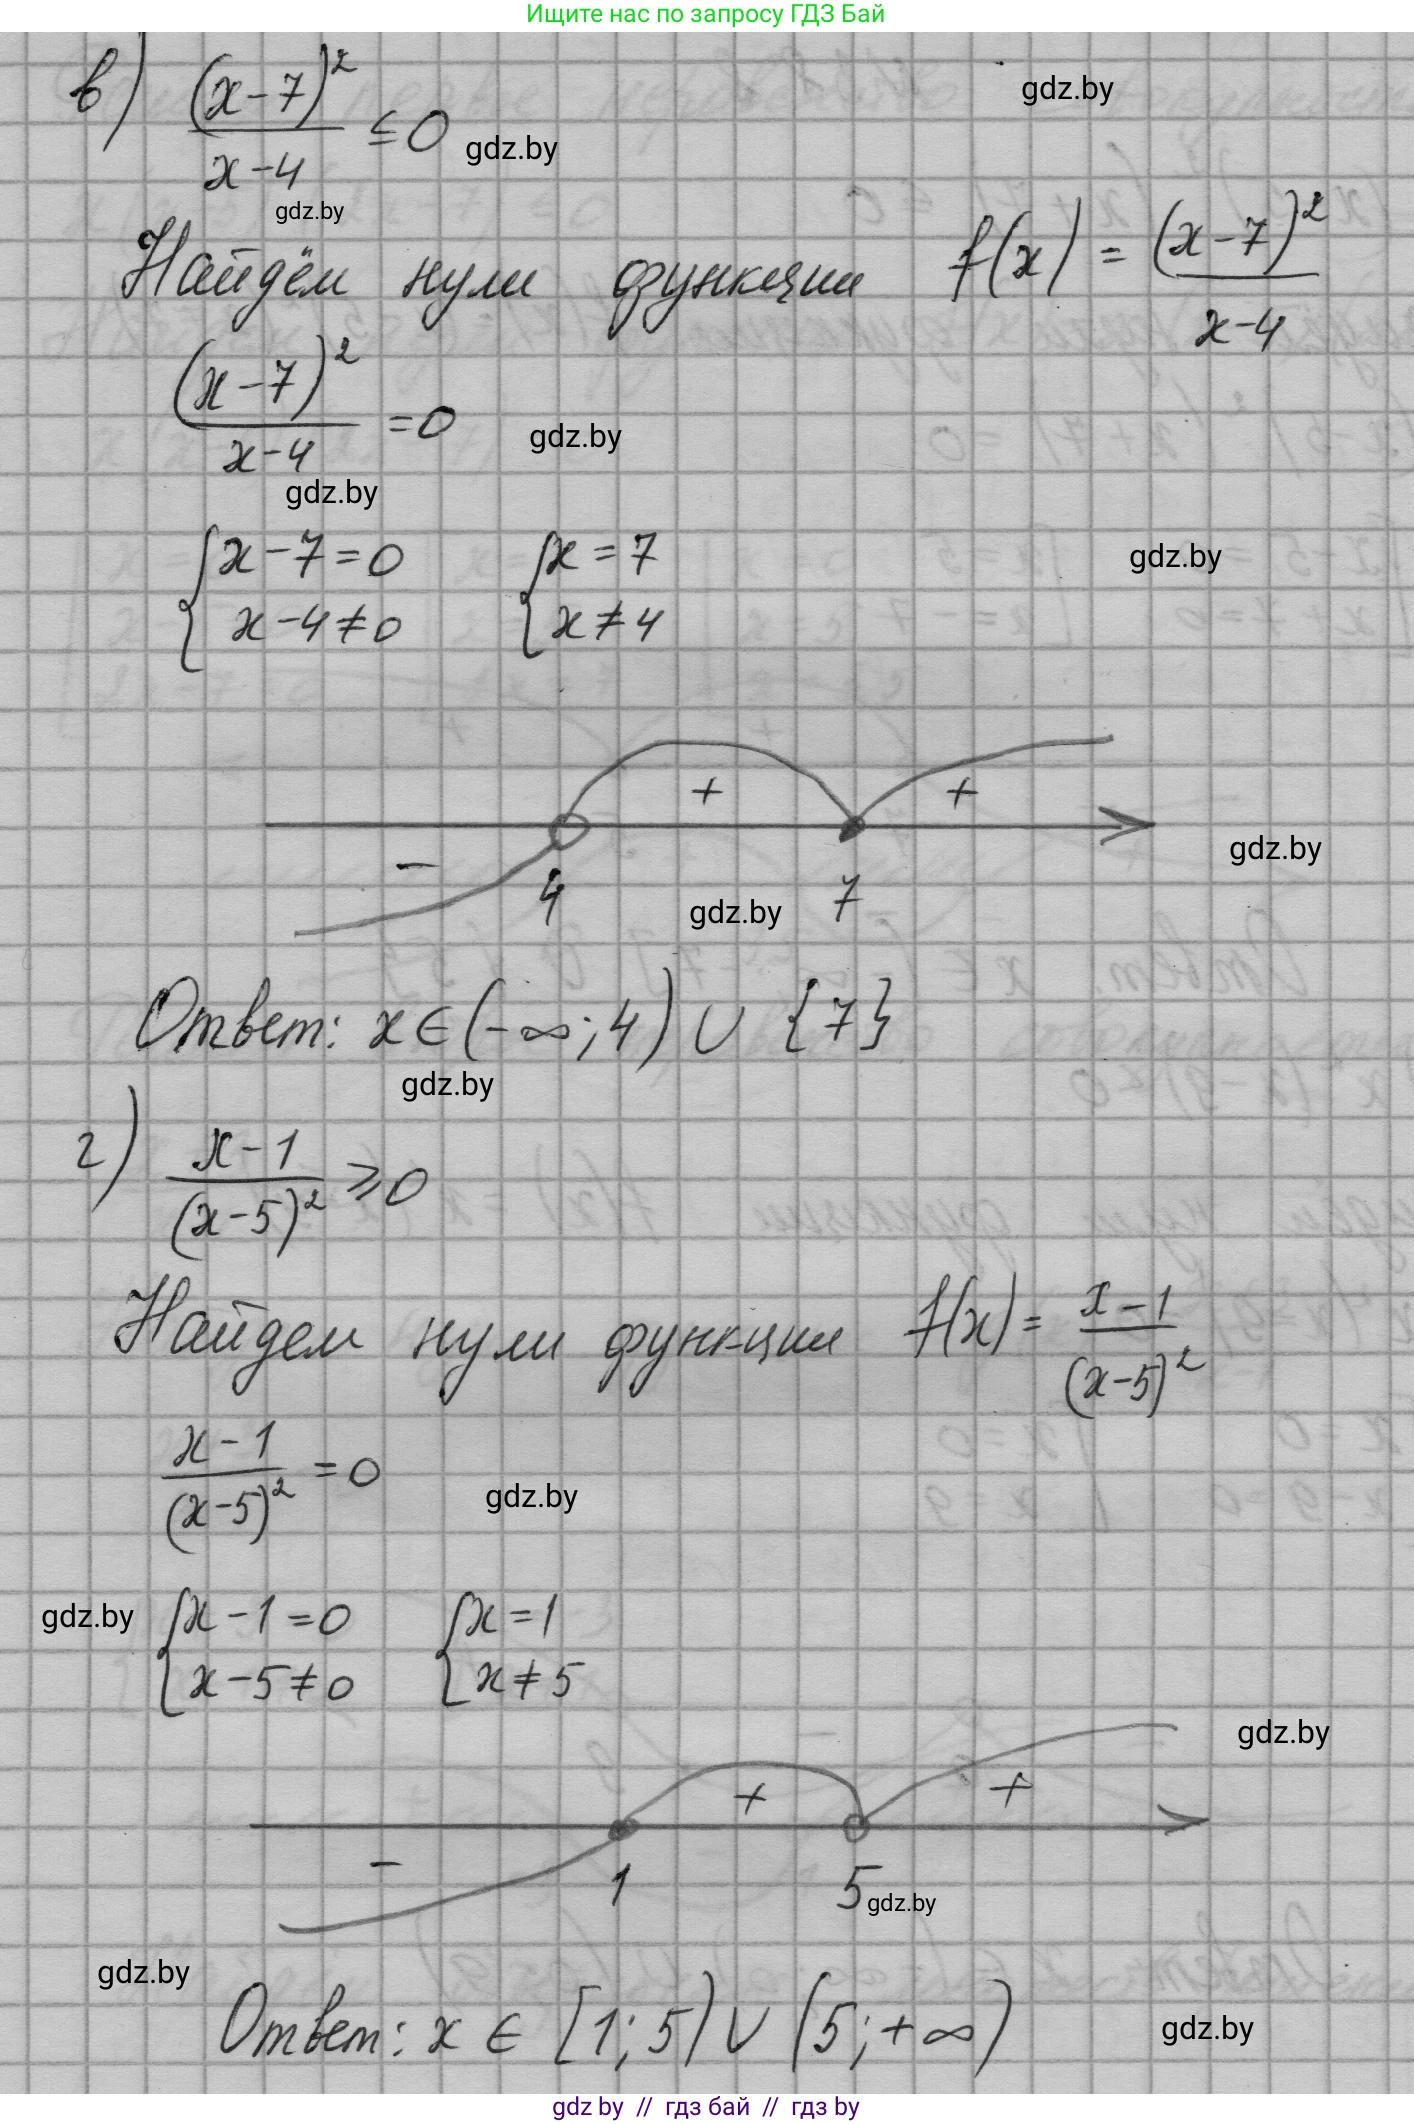 Ищите нас по запросу ГДЗ Бай
в) (x-7)² / (x-4) ≤ 0
gdz.by
gdz.by
gdz.by
Найдём нули функции f(x) = (x-7)² / (x-4)
(x-7)² / (x-4) = 0
gdz.by
gdz.by
{ x-7=0 { x=7
x-4≠0 x≠4
gdz.by
+ +
-
4 7
gdz.by
gdz.by
Ответ: x∈(-∞;4) ∪ {7}
gdz.by
г) (x-1) / (x-5)² ≥ 0
Найдем нули функции f(x) = (x-1) / (x-5)²
(x-1) / (x-5)² = 0
gdz.by
gdz.by
{ x-1=0 { x=1
x-5≠0 x≠5
gdz.by
+ +
-
1 5
gdz.by
gdz.by
Ответ: x ∈ [1;5) ∪ (5;+∞)
gdz.by
gdz by // гдз бай // гдз by